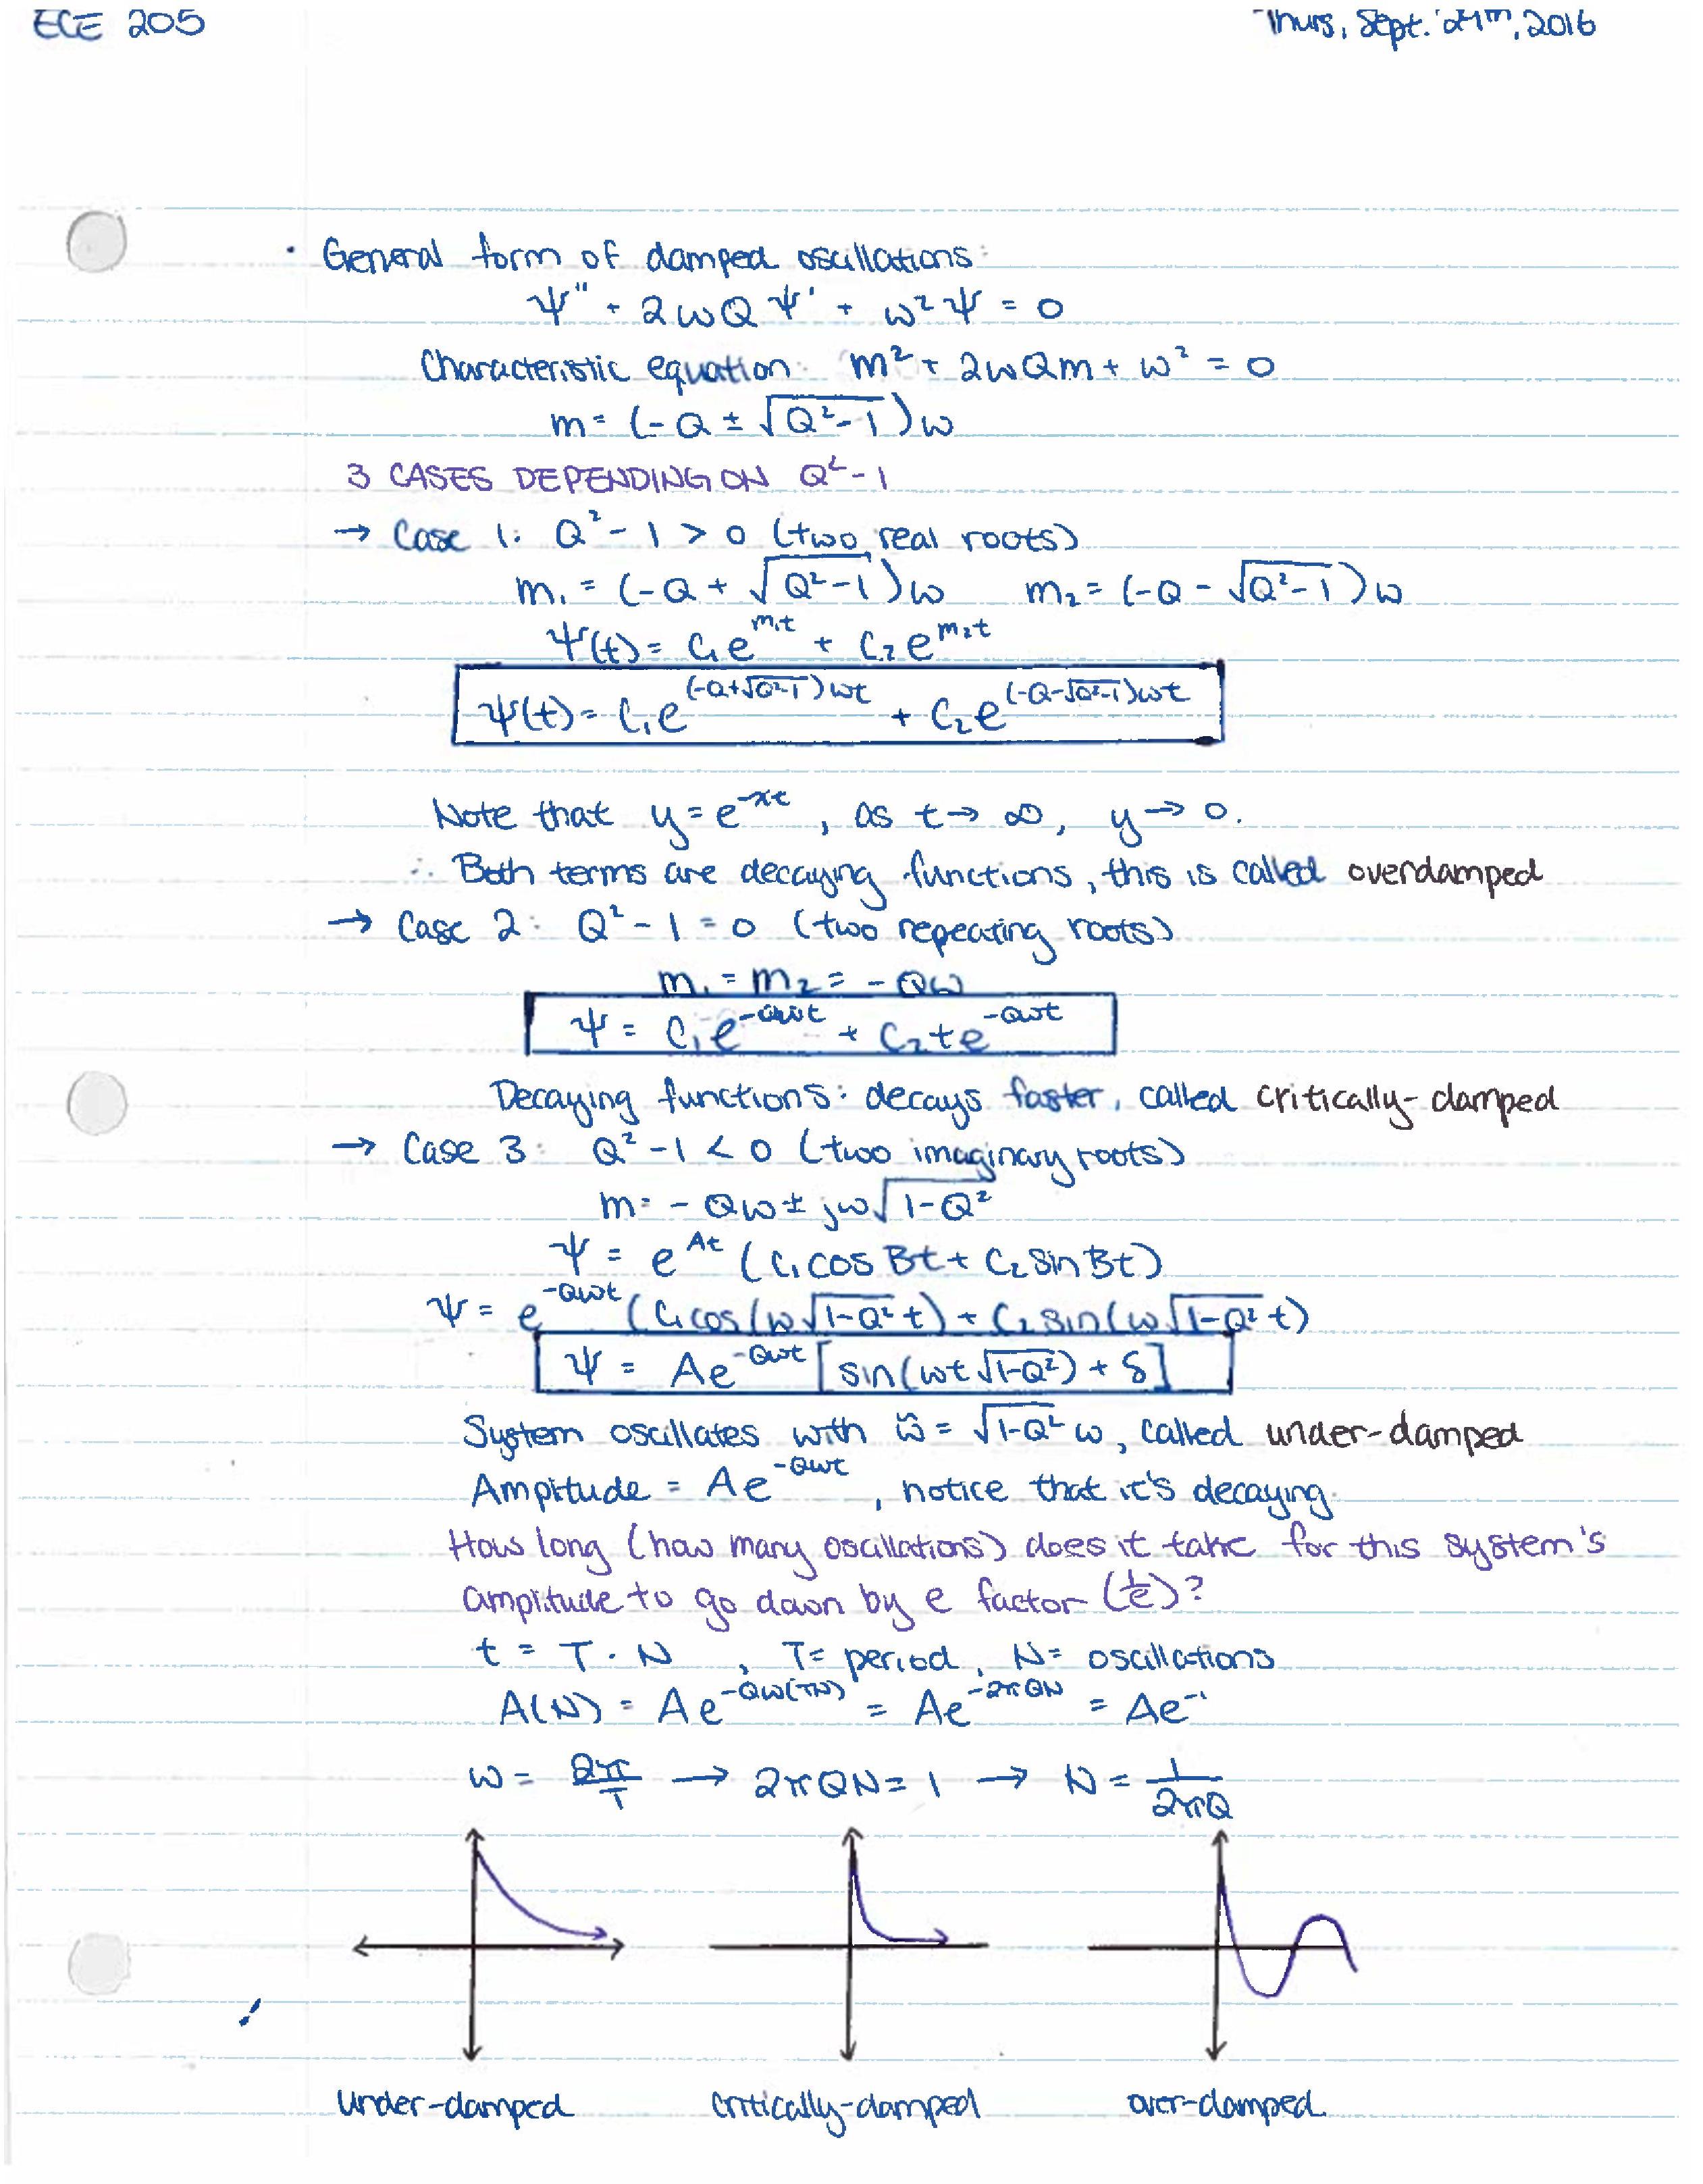 ECE 205
Thurs, Sept. 24th, 2016
· General form of damped oscillations:
Ψ'' + 2ωQΨ' + ω²Ψ = 0
Characteristic equation: m² + 2ωQm + ω² = 0
m = (-Q ± √(Q²-1))ω
3 CASES DEPENDING ON Q²-1
→ Case 1: Q² - 1 > 0 (two real roots)
m₁ = (-Q + √(Q²-1))ω m₂ = (-Q - √(Q²-1))ω
Ψ(t) = C₁e^(m₁t) + C₂e^(m₂t)
Ψ(t) = C₁e^((-Q+√(Q²-1))ωt) + C₂e^((-Q-√(Q²-1))ωt)
Note that y = e^(-xt), as t → ∞, y → 0.
∴ Both terms are decaying functions, this is called overdamped
→ Case 2: Q² - 1 = 0 (two repeating roots)
m₁ = m₂ = -Qω
Ψ = C₁e^(-Qωt) + C₂te^(-Qωt)
Decaying functions: decays faster, called critically-damped
→ Case 3: Q² - 1 < 0 (two imaginary roots)
m = -Qω ± jω√(1-Q²)
Ψ = e^(At) (C₁cosBt + C₂sinBt)
Ψ = e^(-Qωt) (C₁cos(ω√(1-Q²) t) + C₂sin(ω√(1-Q²) t)
Ψ = Ae^(-Qωt) [sin(ωt√(1-Q²)) + δ]
System oscillates with ω̃ = √(1-Q²) ω, called under-damped
Amplitude = Ae^(-Qωt), notice that it's decaying.
How long (how many oscillations) does it take for this system's
amplitude to go down by e factor (1/e)?
t = T · N , T = period, N = oscillations
A(N) = Ae^(-Qω(TN)) = Ae^(-2πQN) = Ae^(-1)
ω = 2π/T → 2πQN = 1 → N = 1/(2πQ)
under-damped critically-damped over-damped